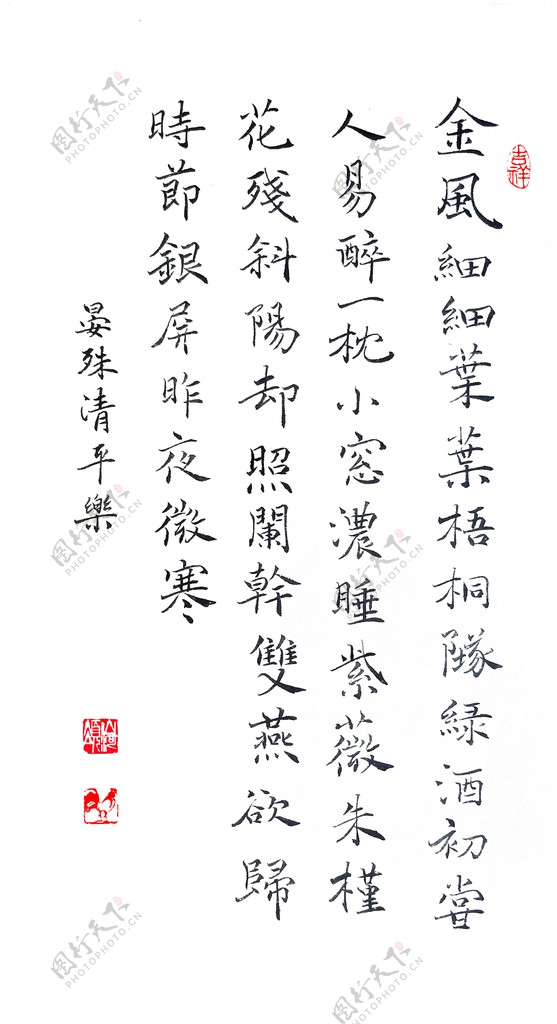 吉祥
金風細細葉葉梧桐隊緑酒初甞
人易醉一枕小窓濃睡紫薇朱槿
花殘斜陽却照闌幹雙燕欲歸
時節銀屏昨夜微寒
晏殊清平樂
图行天下
PHOTOPHOTO.CN